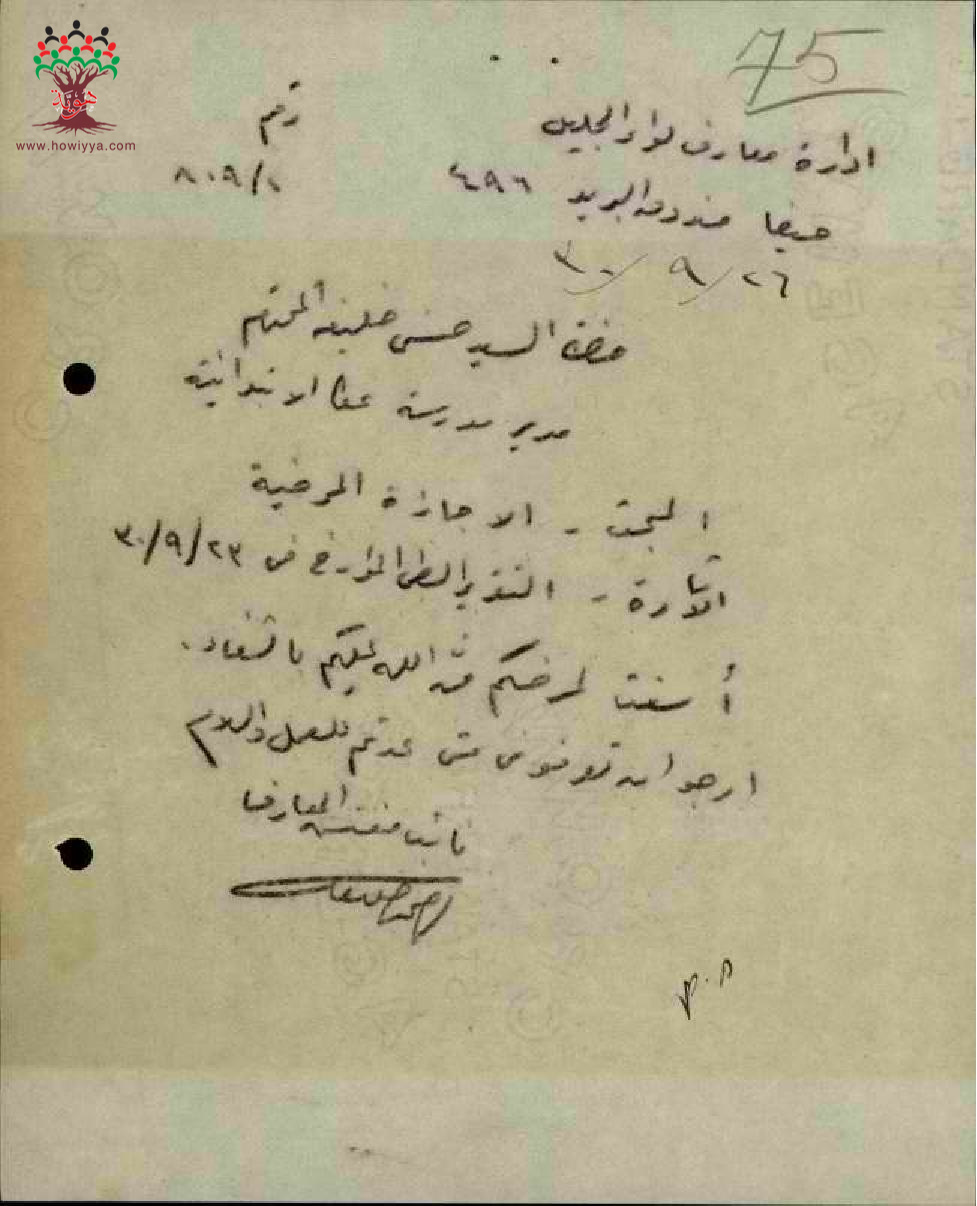 75
هوية
www.howiyya.com
ادارة معارف لواء الجليل
رقم
حيفا صندوق البريد ٤٩٦
٨٠٩/١
٢٦/٩/٣٠
حضرة السيد حسني خليفة المحترم
مدير مدرسة عكا الابتدائية
البحث - الاجازة المرضية
الاشارة - التقرير الطبي المؤرخ في ٢٣/٩/٣٠
أسفت لمرضكم منّ الله عليكم بالشفاء.
ارجو ان تعرفوني متى عدتم للعمل والسلام
نائب مفتش المعارف